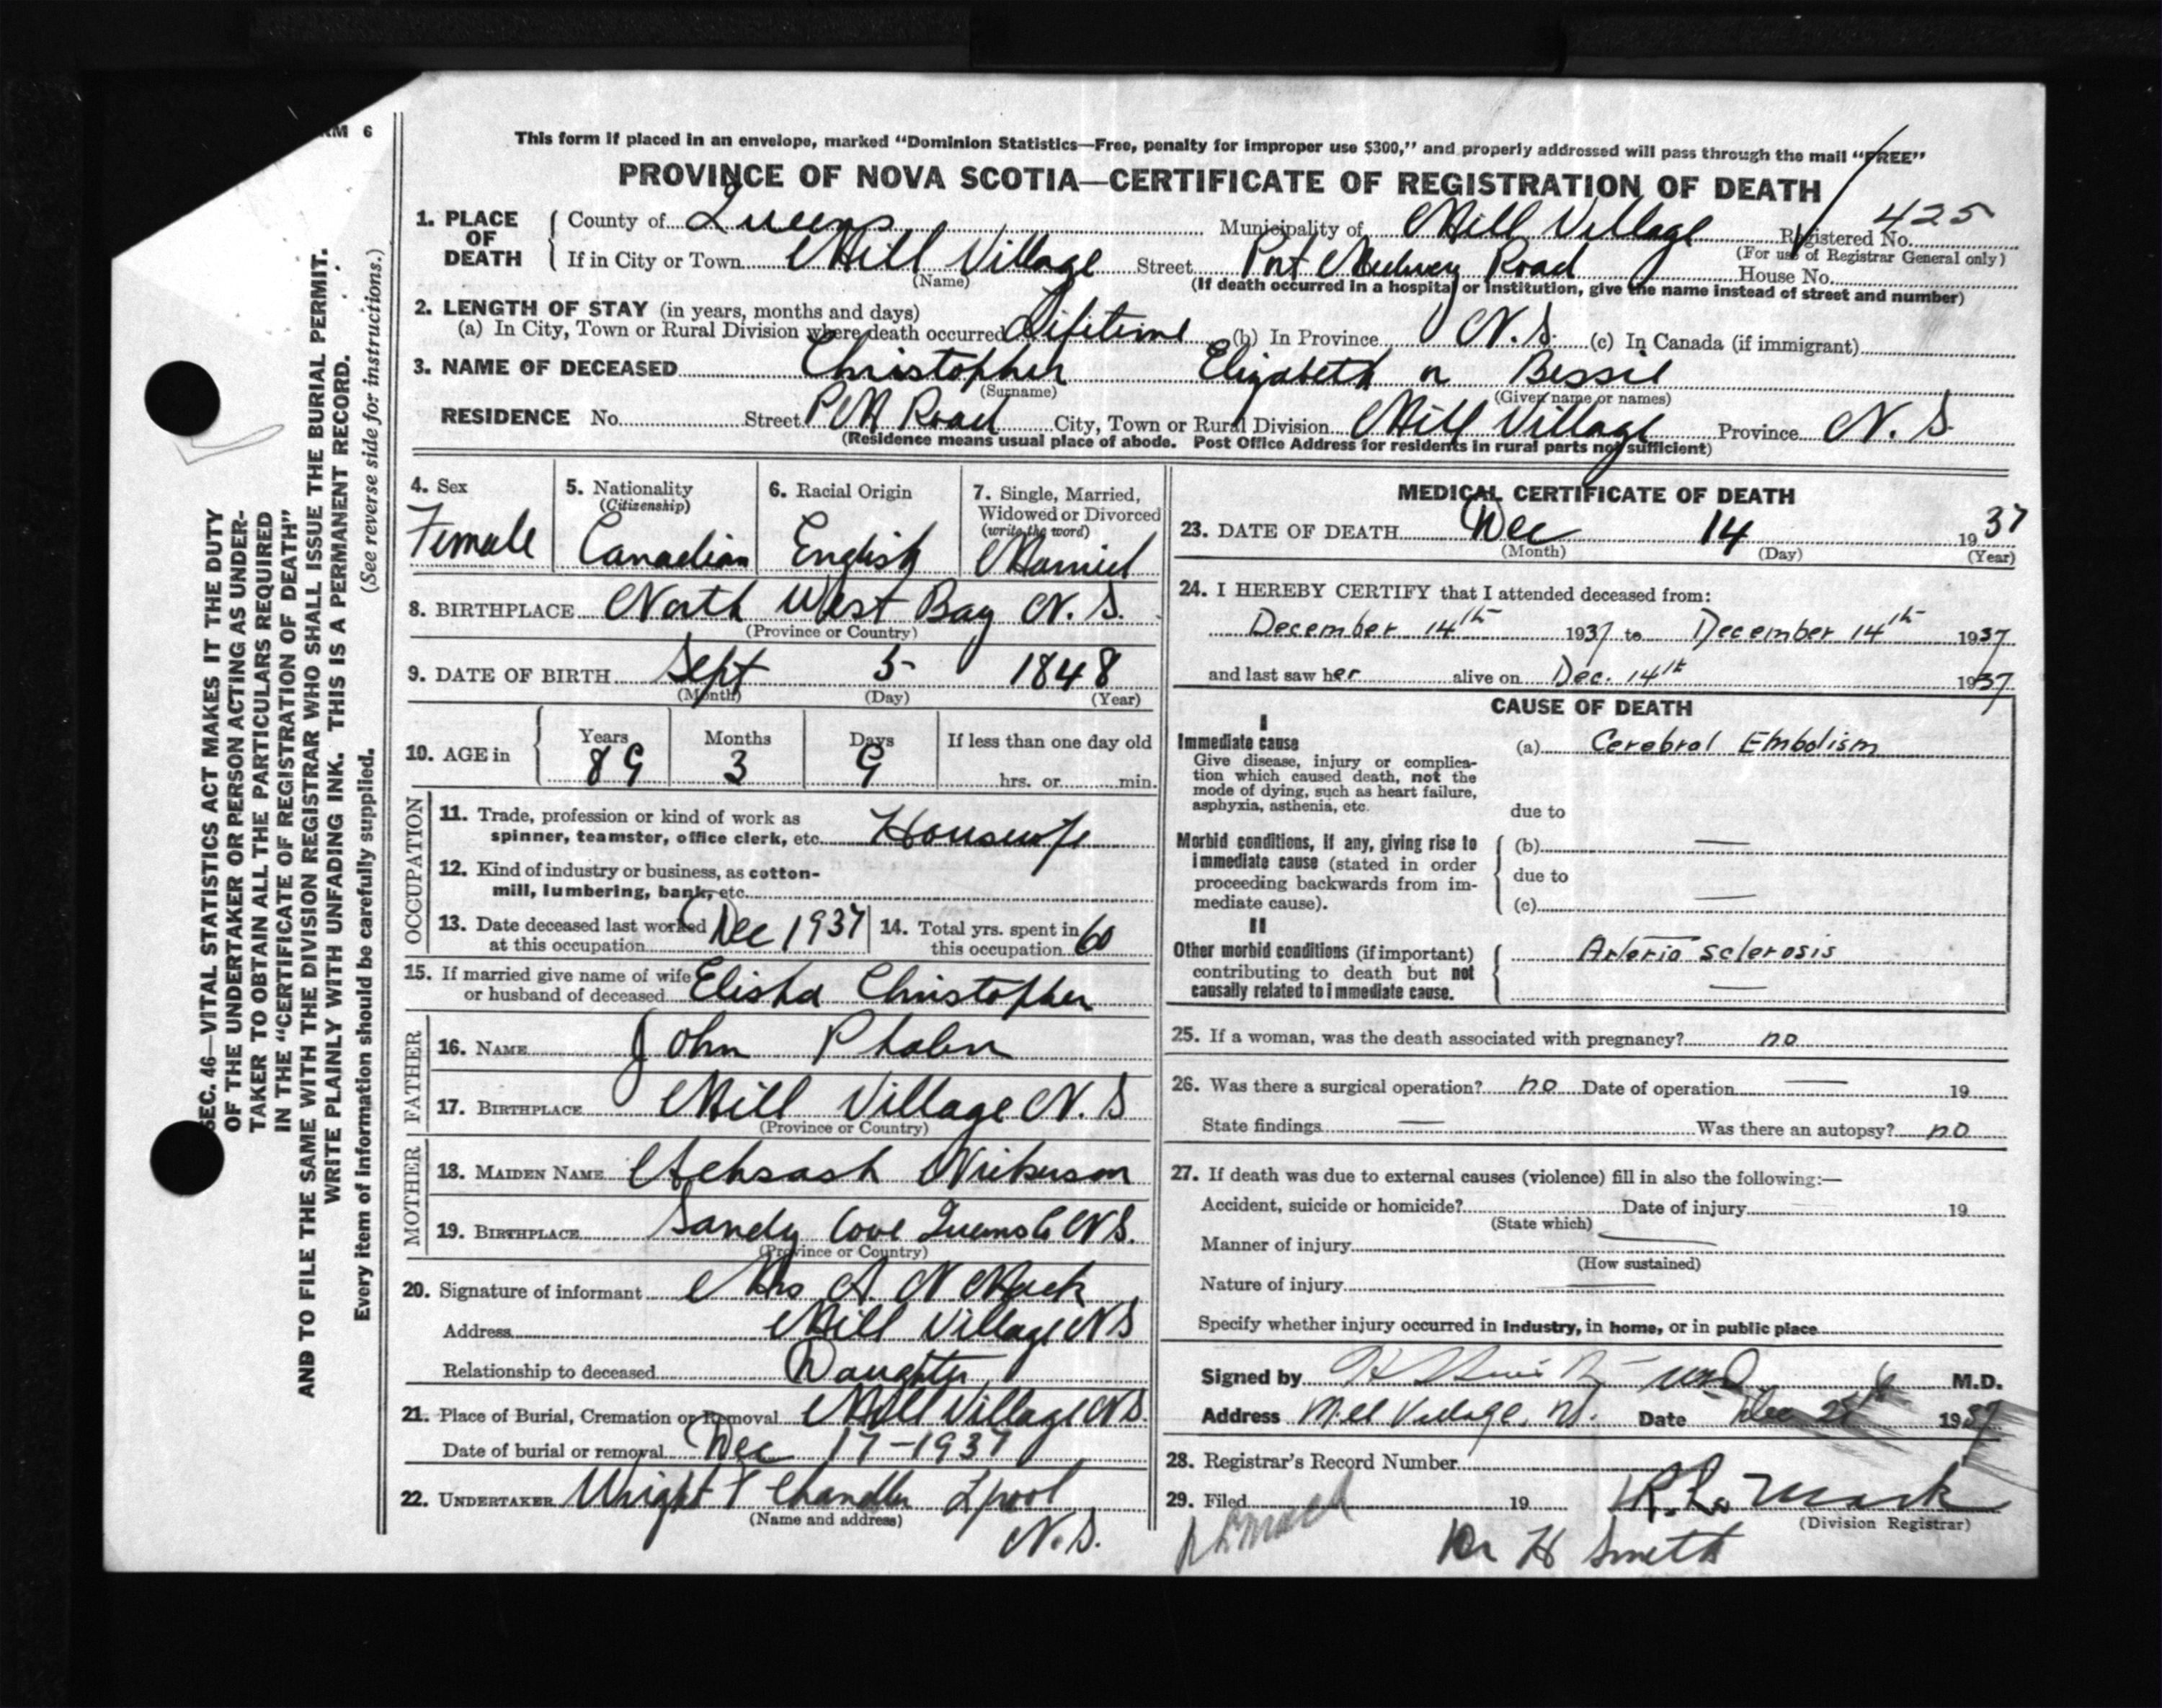 RM 6
This form if placed in an envelope, marked “Dominion Statistics—Free, penalty for improper use $300,” and properly addressed will pass through the mail “FREE”
PROVINCE OF NOVA SCOTIA—CERTIFICATE OF REGISTRATION OF DEATH
1. PLACE OF DEATH
County of Queens Municipality of Mill Village Registered No. 425
(For use of Registrar General only)
If in City or Town Mill Village Street Port Medway Road House No.
(Name) (If death occurred in a hospital or institution, give the name instead of street and number)
2. LENGTH OF STAY (in years, months and days)
(a) In City, Town or Rural Division where death occurred Lifetime (b) In Province N.S. (c) In Canada (if immigrant)
3. NAME OF DECEASED Christopher Elizabeth or Bessie
(Surname) (Given name or names)
RESIDENCE No. Street P M Road City, Town or Rural Division Mill Village Province N.S.
(Residence means usual place of abode. Post Office Address for residents in rural parts not sufficient)
4. Sex
Female
5. Nationality
(Citizenship)
Canadian
6. Racial Origin
English
7. Single, Married,
Widowed or Divorced
(write the word)
Married
8. BIRTHPLACE North West Bay N.S.
(Province or Country)
9. DATE OF BIRTH Sept 5 1848
(Month) (Day) (Year)
10. AGE in
Years Months Days If less than one day old
89 3 9 hrs. or min.
OCCUPATION
11. Trade, profession or kind of work as
spinner, teamster, office clerk, etc. Housewife
12. Kind of industry or business, as cotton-
mill, lumbering, bank, etc.
13. Date deceased last worked
at this occupation Dec 1937
14. Total yrs. spent in
this occupation 60
15. If married give name of wife
or husband of deceased Elisha Christopher
FATHER
16. NAME John Phalen
17. BIRTHPLACE Mill Village N.S
(Province or Country)
MOTHER
18. MAIDEN NAME Achsash Nickerson
19. BIRTHPLACE Sandy Cove Queens Co N.S.
(Province or Country)
20. Signature of informant Mrs A. N Mack
Address Mill Village N S
Relationship to deceased Daughter
21. Place of Burial, Cremation or Removal Mill Village N.S.
Date of burial or removal Dec 17-1937
22. UNDERTAKER Wright & Chandler Lpool
(Name and address)
N.S.
MEDICAL CERTIFICATE OF DEATH
23. DATE OF DEATH Dec 14 1937
(Month) (Day) (Year)
24. I HEREBY CERTIFY that I attended deceased from:
December 14th 1937 to December 14th 1937
and last saw her alive on Dec. 14th 1937
CAUSE OF DEATH
I
Immediate cause
Give disease, injury or complica-
tion which caused death, not the
mode of dying, such as heart failure,
asphyxia, asthenia, etc.
(a) Cerebral Embolism
due to
Morbid conditions, if any, giving rise to
immediate cause (stated in order
proceeding backwards from im-
mediate cause).
(b) —
due to
(c) —
II
Other morbid conditions (if important)
contributing to death but not
causally related to immediate cause.
Arterio sclerosis
—
25. If a woman, was the death associated with pregnancy? no
26. Was there a surgical operation? no Date of operation — 19
State findings — Was there an autopsy? no
27. If death was due to external causes (violence) fill in also the following:—
Accident, suicide or homicide? Date of injury 19
(State which)
Manner of injury
(How sustained)
Nature of injury
Specify whether injury occurred in Industry, in home, or in public place
Signed by M.D.
Address Mill Village, N.S. Date Dec 1937
28. Registrar's Record Number
29. Filed 19 R. L. Mack
(Division Registrar)
R L Mack
Dr H Smith
SEC. 46—VITAL STATISTICS ACT MAKES IT THE DUTY
OF THE UNDERTAKER OR PERSON ACTING AS UNDER-
TAKER TO OBTAIN ALL THE PARTICULARS REQUIRED
IN THE “CERTIFICATE OF REGISTRATION OF DEATH”
AND TO FILE THE SAME WITH THE DIVISION REGISTRAR WHO SHALL ISSUE THE BURIAL PERMIT.
WRITE PLAINLY WITH UNFADING INK. THIS IS A PERMANENT RECORD.
Every item of information should be carefully supplied. (See reverse side for instructions.)